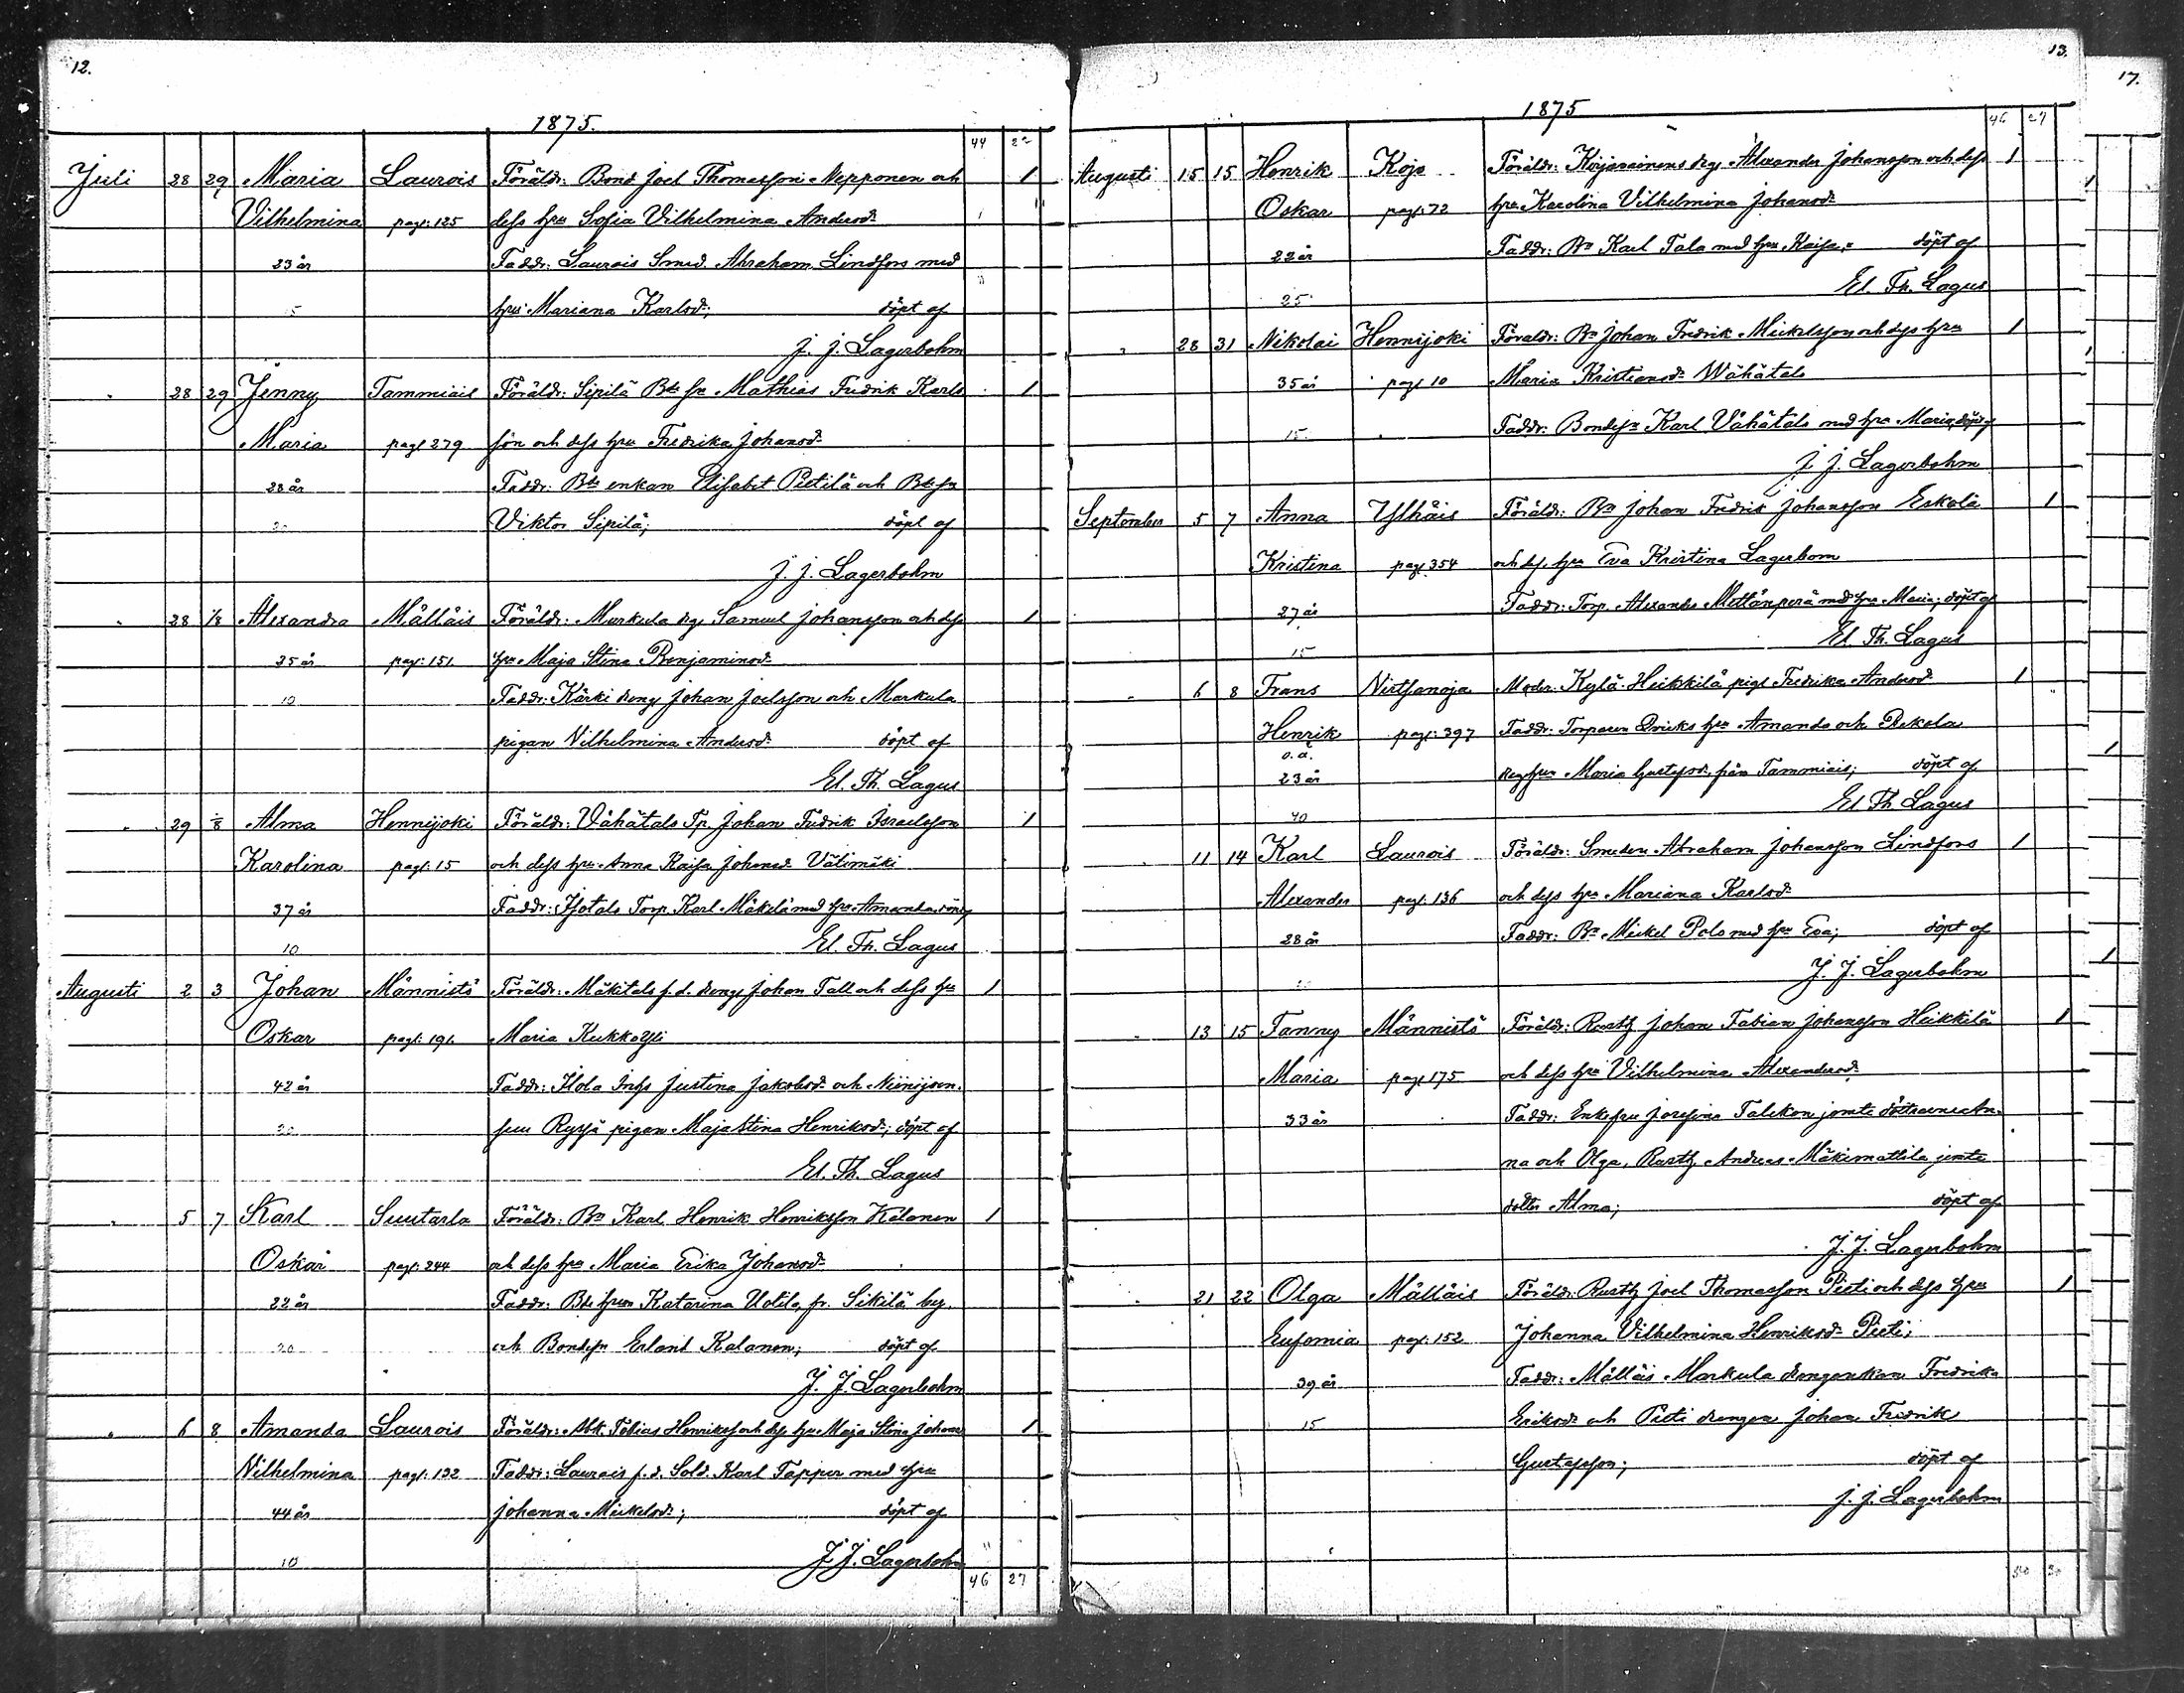 12.
1875.
44
Juli 28 29 Maria Laurois Föräldr: Bond Joel Thomasson Nepponen och 1
Vilhelmina pag: 125 dess hru Sofia Vilhelmina Andersd:
23 år Faddr: Laurois Smed. Abraham Lindfors med
hru Mariana Karlsd:; döpt af
J. J. Lagerbohm
" 28 29 Jenny Tammiais Föräldr: Sipilä Bde Mathias Fredrik Karls 1
Maria pag 279 son och dess hru Fredrika Johansd:
28 år Faddr: Bde enkan Elisabet Pietilä och
20 Viktor Sipilä; döpt af
J. J. Lagerbohm
" 28 1/8 Alexandra Mälläis Föräldr: Markula drg Samuel Johansson och dess 1
35 år pag: 151. hru Maja Stina Benjaminsd:
10 Faddr: Kärki dreng Johan Joelsson och Markula
pigan Vilhelmina Andersd: döpt af
El. Th. Lagus
" 29 1/8 Alma Hennijoki Föräldr: Vähätalo Tp. Johan Fredrik Israelsson 1
Karolina pag: 15 och dess hru Anna Kaisa Johansd. Välimäki
37 år Faddr: Isotalo Torp. Karl Mäkelä med hru Amanda, döpt af
10 El. Th. Lagus
Augusti 2 3 Johan Männistö Föräldr: Mäkitalo f.d. dreng Johan Tall och dess hru 1
Oskar pag: 191. Maria Kukkayli
42 år Faddr: Ilola Inhs Justina Jakobsd: och Niinijoen
20 suu Ryssä pigan Maja Stina Henriksd:; döpt af
El. Th. Lagus
" 5 7 Karl Suutarla Föräldr: Bn Karl Henrik Henriksson Kalanen 1
Oskar pag: 244 och dess hru Maria Erika Johansd:
22 år Faddr: Bde hrun Katarina Uotila fr. Sikilä by.
20 och Erland Kalanen; döpt af
J. J. Lagerbohm
" 6 8 Amanda Laurois Föräldr: Tobias Henrikss och dess hru Maja Stina Johansd 1
Vilhelmina pag: 132 Faddr: Laurois f.d. Sold. Karl Tapper med hru
44 år Johanna Mickelsd:; döpt af
10 J. J. Lagerbohm
46 27
13.
1875
46 27
Augusti 15 15 Henrik Kojo Föräldr: drg Alexander Johansson och dess 1
Oskar pag: 72 hru Karolina Vilhelmina Johansd:
22 år Faddr: Bn Karl Talo med hru Kaisa; döpt af
25 El. Th. Lagus
" 28 31 Nikolai Hennijoki Föräldr: Bn Johan Fredrik Mickelsson och dess hru 1
35 år pag 10 Maria Kristiansd: Wähätalo
15 Faddr: Karl Vähätalo med hru Maria, döpt af
J. J. Lagerbohm
September 5 7 Anna Ylhäis Föräldr: Bn Johan Fredrik Johansson Eskola 1
Kristina pag 354 och dess hru Eva Kristina Lagerbom
27 år Faddr: Torp. Alexander Mettänperä med hru Maria; döpt af
15 El. Th. Lagus
" 6 8 Frans Virtsanoja Moder: Kylä Heikkilä pigl Fredrika Andersd: 1
Henrik pag: 397 Faddr: Torparen hru Amanda och Pekola
o. ä.
23 år drg hru Maria Gustafsd. från Tammiais; döpt af
40 El. Th. Lagus
" 11 14 Karl Laurois Föräldr: Smeden Abraham Johansson Lindfors 1
Alexander pag. 136 och dess hru Mariana Karlsd:
28 år Faddr: Bn Mickel Polo med hru Eva; döpt af
J. J. Lagerbohm
" 13 15 Fanny Männistö Föräldr: Rusth Johan Fabian Johansson Heikkilä 1
Maria pag 175 och dess hru Vilhelmina Alexandersd.
33 år Faddr: Enkefru Josefina Talekon jemte döttrarne An
na och Olga, Rusth Andreas Mäkimattila jemte
dotter Alma; döpt af
J. J. Lagerbohm
" 21 22 Olga Mälläis Föräldr: Rusth Joel Thomasson Pieti och dess hru 1
Eufemia pag: 152 Johanna Vilhelmina Henriksd: Pieti;
39 år Faddr: Mälläis Markula drengenkan Fredrika
15 Eriksd: och Pieti drengen Johan Fredrik
Gustafsson; döpt af
J. J. Lagerbohm
50 30
17.